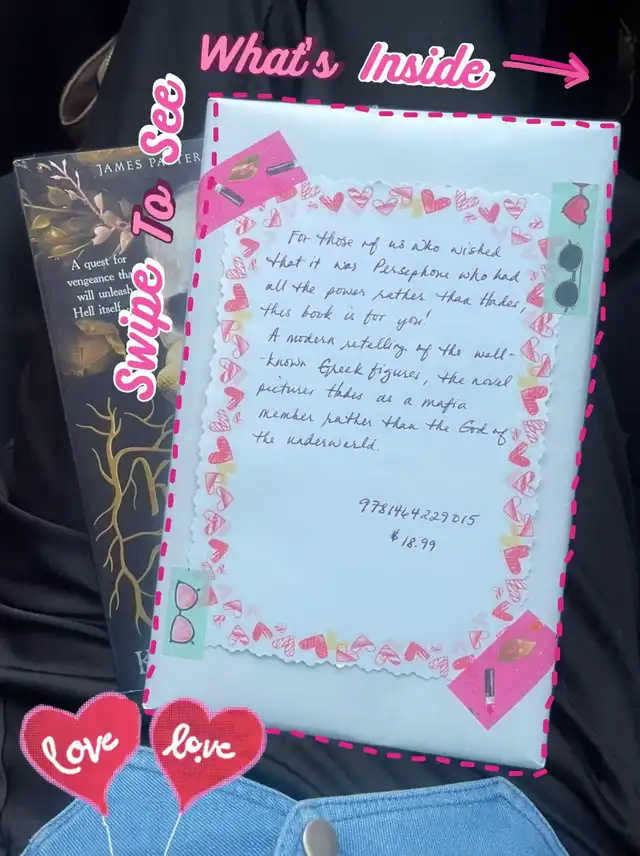 What's Inside
Swipe To See
JAMES PA
A quest for
vengeance tha
will unleash
Hell itself
K
For those of us who wished
that it was Persephone who had
all the power rather than Hades,
this book is for you!
A modern retelling of the well-
-known Greek figures, the novel
pictures Hades as a mafia
member rather than the God of
the underworld.
9781464229015
$18.99
love
love